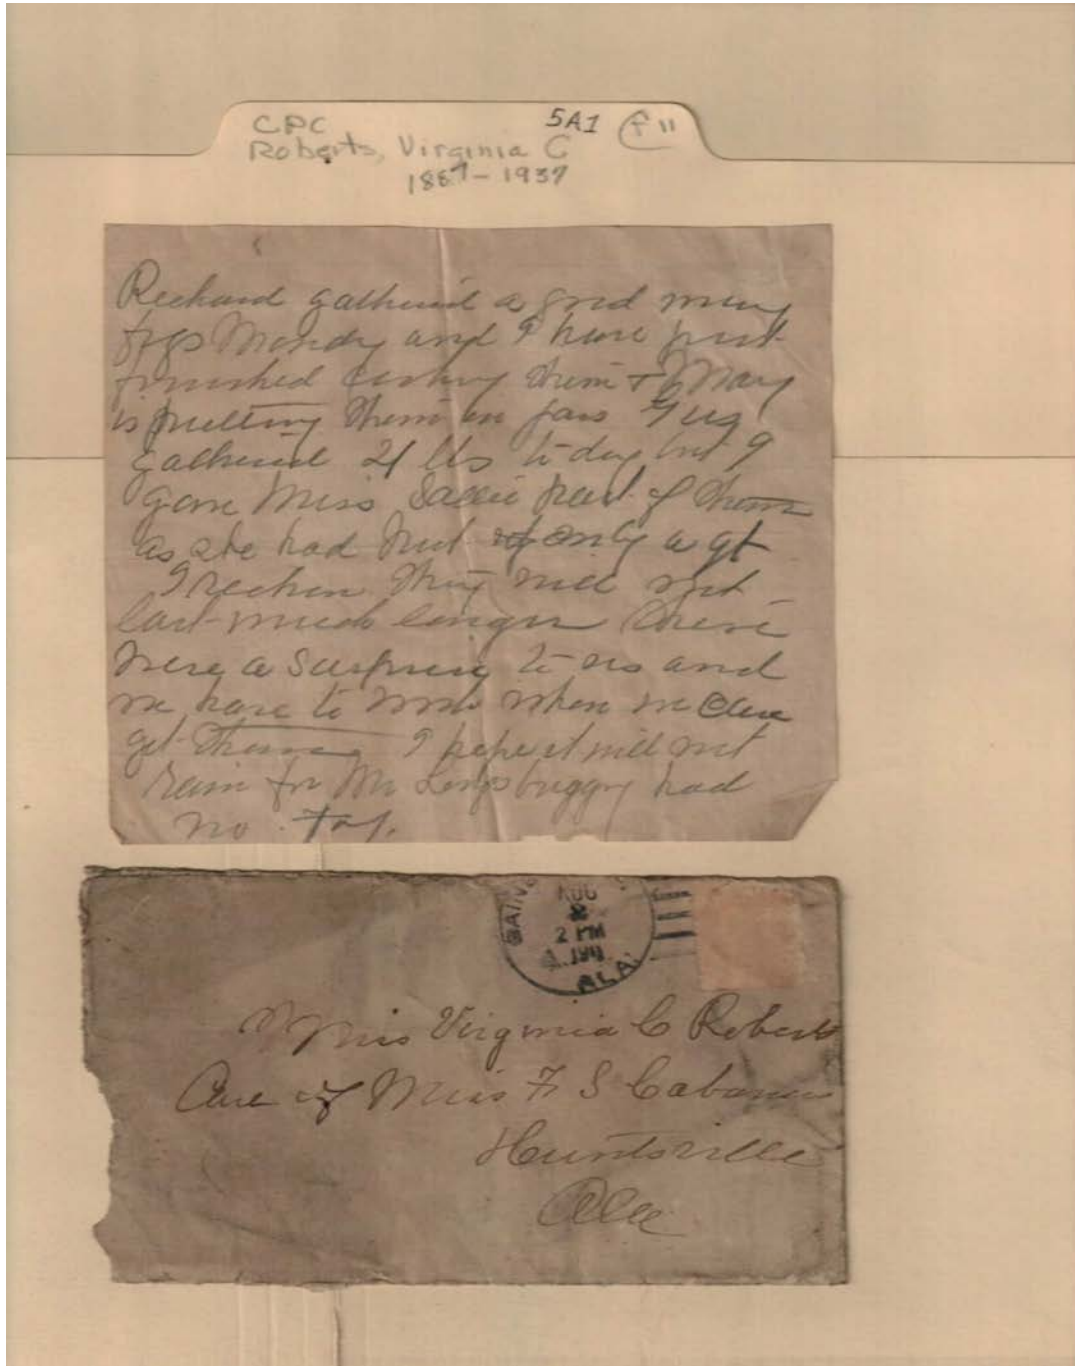 CPC 5A1 f"
Roberts, Virginia C
1887-1937
Richard gathered a good many
figs Monday and I have just
finished them + Mary
is putting them in jars Gus
gathered 21 lbs to day but I
gave Miss Sallie part of them
as she had put up only a qt
I reckon they will not
last much longer these
were a surprise to us and
we have to work when we
get them I hope it will not
rain for Mr buggy had
no top.
AUG
2 PM
1911
ALA.
Miss Virginia C Roberts
Care of Miss F S Cabaniss
Huntsville
Ala